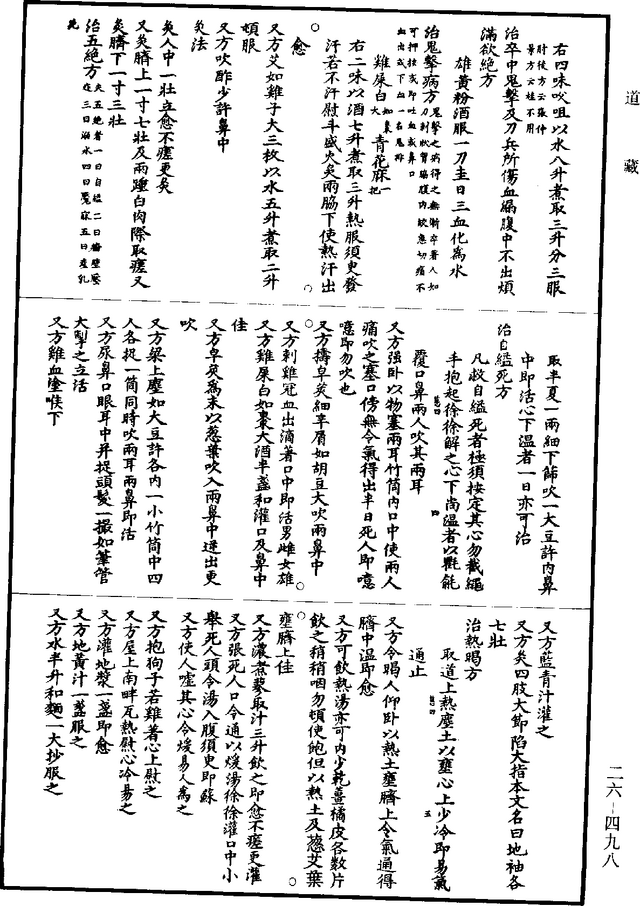 道藏
右四味㕮咀以水八升煮取三升分三服
肘後方云張仲
景方云桂不用
治卒中鬼擊及刀兵所傷血漏腹中不出煩
滿欲絶方
雄黃粉酒服一刀圭日三血化為水
治鬼擊病方鬼擊之病得之無漸卒著人如
刀刺狀胷脇腹內㽲急切痛不
可抑按或即吐血或鼻口
血出或下血一名鬼排
雞屎白如棗大青花麻一把
右二味以酒七升煮取三升熱服須臾發
汗若不汗熨斗盛火灸兩脇下使熱汗出
愈
又方艾如雞子大三枚以水五升煮取二升
頓服
又方吹酢少許鼻中
灸法
灸人中一壯立愈不瘥更灸
又灸臍上一寸七壯及兩踵白肉際取瘥又
灸臍下一寸三壯
治五絶方夫五絶者一曰自縊二曰牆壁壓
迮三曰溺水四曰魘寐五曰產乳
死
取半夏一兩細下篩吹一大豆許內鼻
中即活心下溫者一日亦可治
治自縊死方
凡救自縊死者極須按定其心勿截繩
手抱起徐徐解之心下尚溫者以氍毹
覆口鼻兩人吹其兩耳
又方强卧以物塞兩耳竹筒內口中使兩人
痛吹之塞口傍無令氣得出半日死人即噫
噫即勿吹也
又方擣皁莢細辛屑如胡豆大吹兩鼻中
又方刺雞冠血出滴著口中即活男雌女雄
又方雞屎白如棗大酒半盞和灌口及鼻中
佳
又方皁莢為末以葱葉吹入兩鼻中逆出更
吹
又方梁上塵如大豆許各內一小竹筒中四
人各捉一筒同時吹兩耳兩鼻即活
又方尿鼻口眼耳中并捉頭髮一撮如筆管
大掣之立活
又方雞血塗喉下
又方藍青汁灌之
又方灸四肢大節陷大指本文名曰地袖各
七壯
治熱暍方
取道上熱塵土以壅心上少冷即易氣
通止
又方令暍人仰卧以熱土壅臍上令氣通得
臍中溫即愈
又方可飲熱湯亦可內少乾薑橘皮各數片
飲之稍稍咽勿頓使飽但以熱土及葱艾葉
壅臍上佳
又方濃煮蓼取汁三升飲之即愈不瘥更灌
又方張死人口令通以煖湯徐徐灌口中小
舉死人頭令湯入腹須臾即蘇
又方使人噓其心令煖易人為之
又方抱狗子若雞著心上慰之
又方屋上南畔瓦熱慰心冷易之
又方灌地漿一盞即愈
又方地黃汁一盞服之
又方水半升和麵一大抄服之
二六-四九八